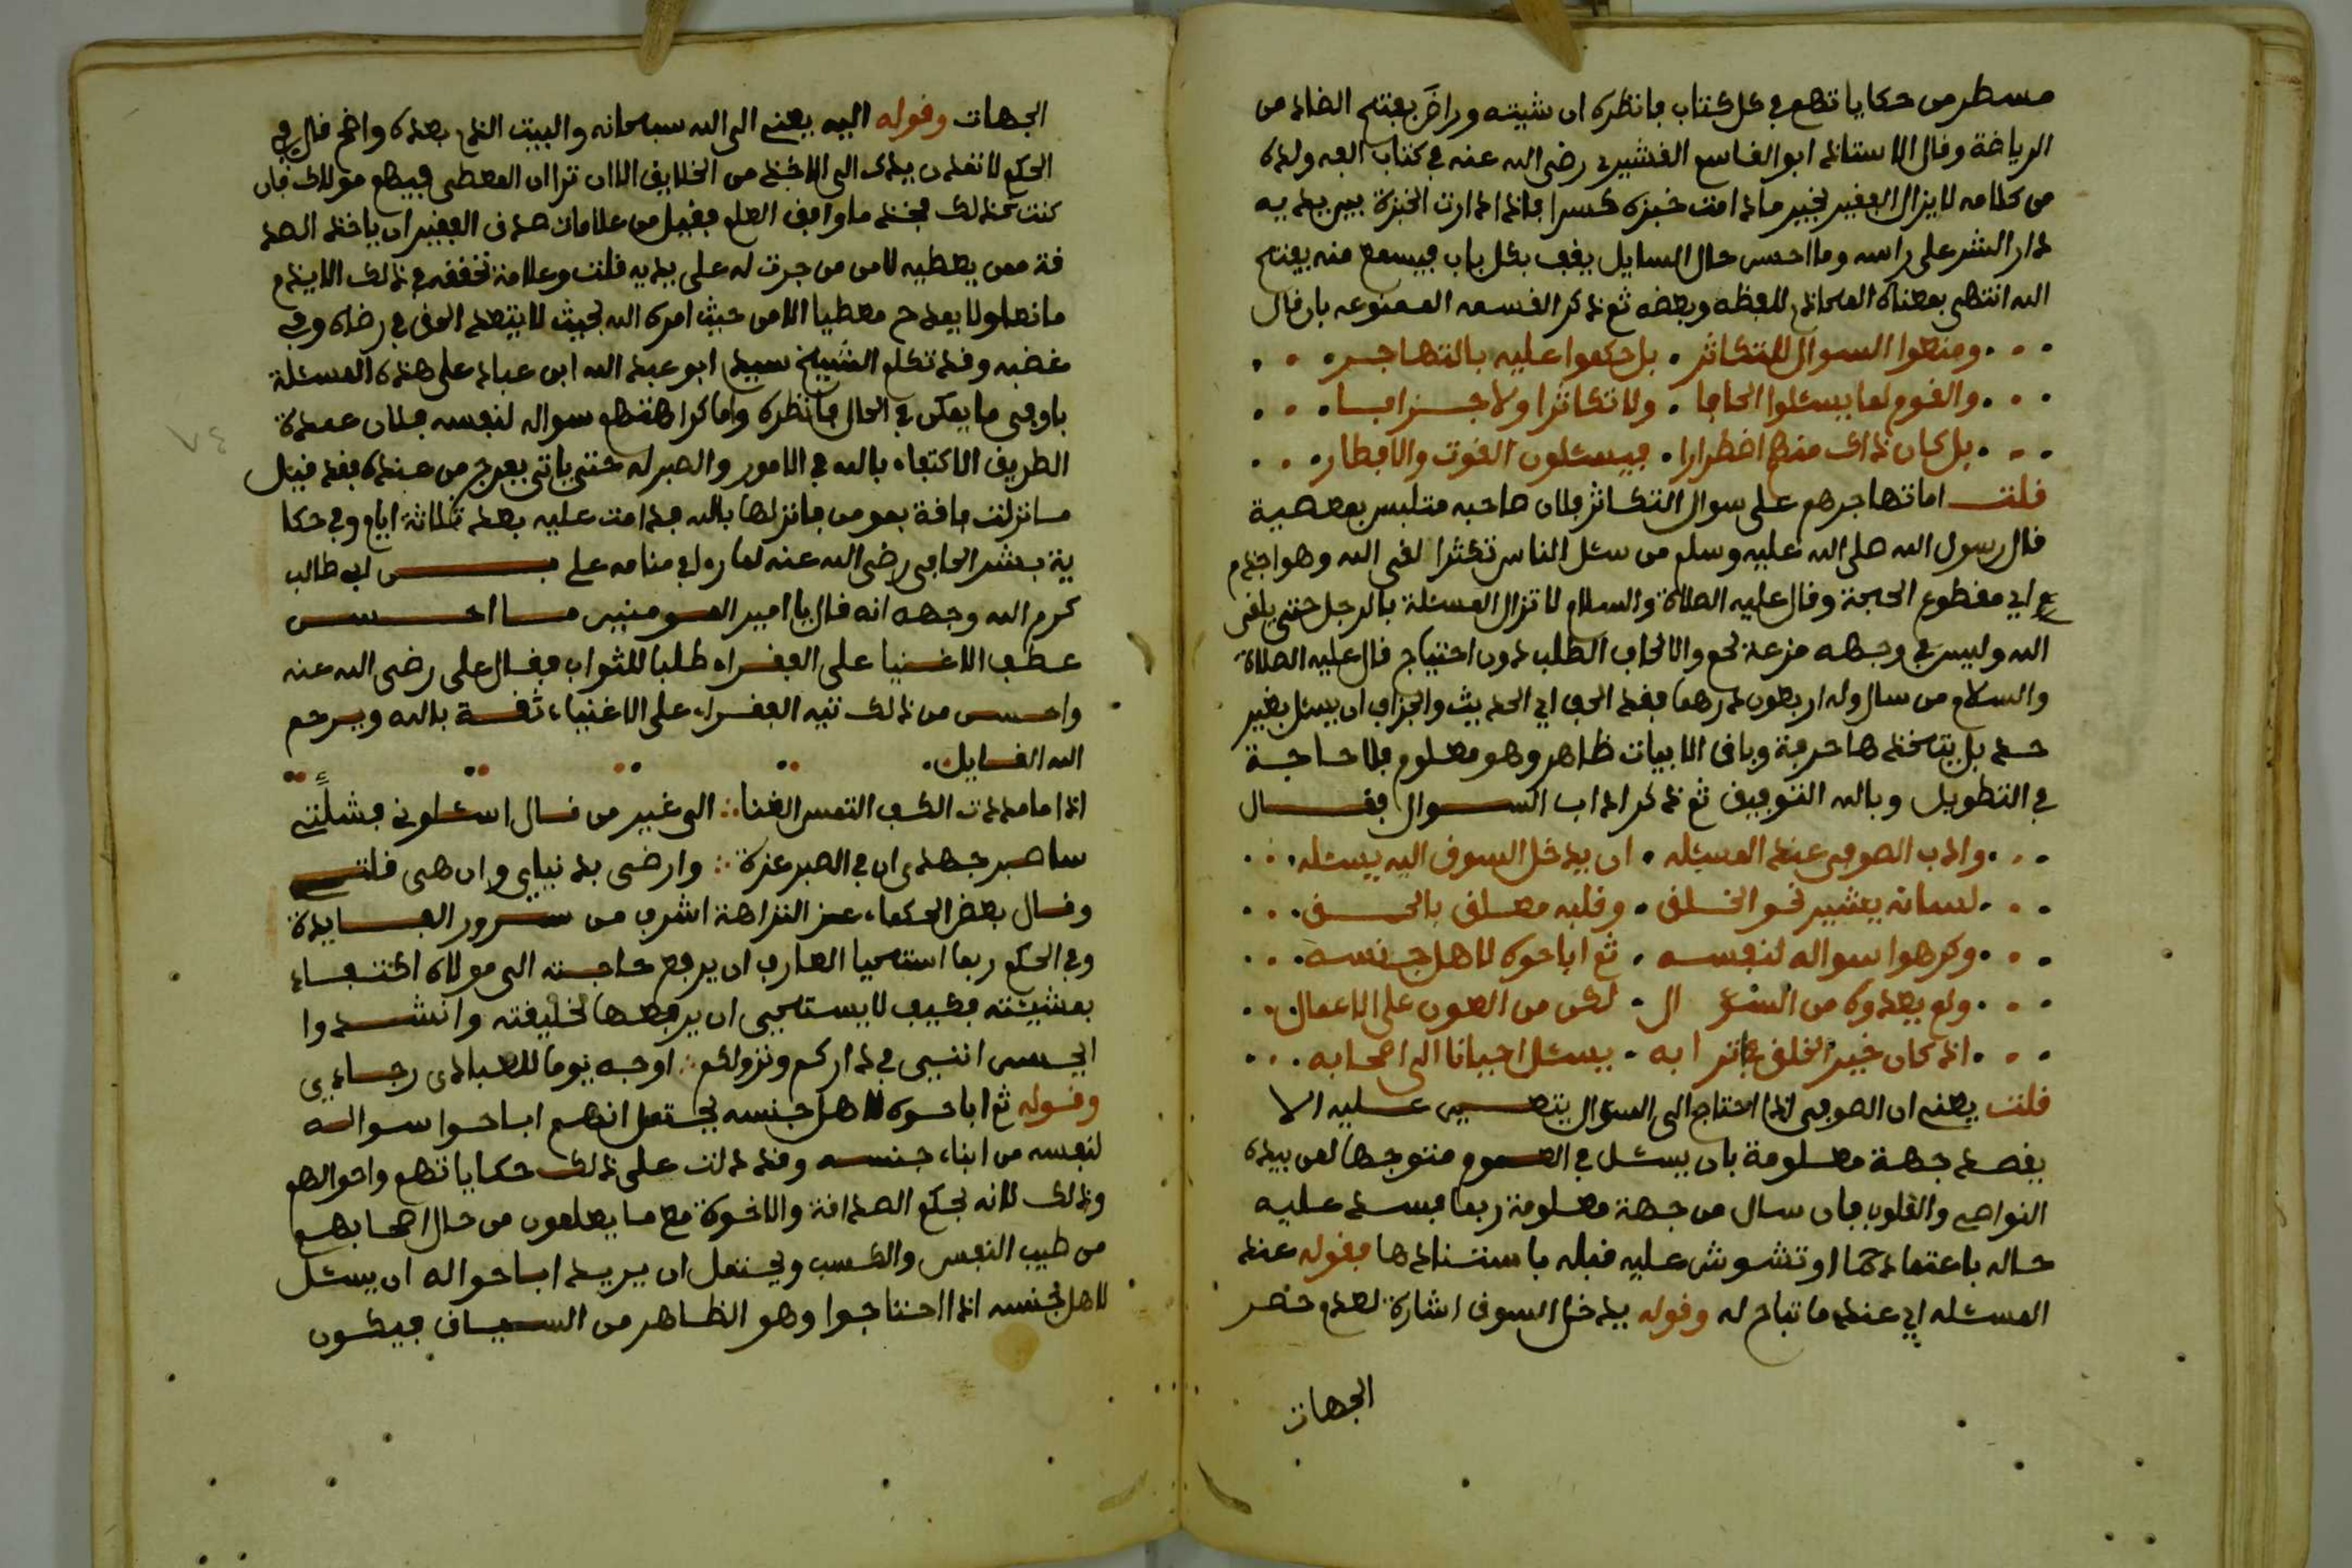 مسطر من حكاياتهم في كل كتاب فانظره ان شيته وراض بفتح الضاد من
الرياضة وقال الاستاذ ابو القاسم القشيري رضي الله عنه في كتاب الفه ولده
من كلامه لا يزال الفقير بخير ما دامت خبزه كسرا فاذا دارت الخبزة بين يديه
دار الشر على راسه وما احسن حال السايل يقف بكل باب فيسمع منه يفتح
الله انتهى بمعناه المحاذي للفظه وبعضه ثم ذكر القسمه الممنوعه بان قال
ومنعوا السوال للتكاثر بل حكموا عليه بالتهاجر
والقوم لما يسئلوا الحافا ولا تكاثرا ولا جزافا
بل كان ذاك منهم اضطرارا فيسئلون القوت والافطار
قلت اما تهاجرهم على سوال التكاثر فلان صاحبه متلبس بمعصية
قال رسول الله صلى الله عليه وسلم من سئل الناس تكثرا لقي الله وهو اجذم
اي مقطوع الحجة وقال عليه الصلاة والسلام لا تزال المسئلة بالرجل حتى يلقى
الله وليس في وجهه مزعة لحم والالحاف الطلب دون احتياج قال عليه الصلاة
والسلام من سال وله اربعون درهما فقد الحف اي الحديث والجزاف ان يسئل بغير
حد بل يتخذها حرفة وباقي الابيات ظاهر وهو معلوم فلا حاجة
في التطويل وبالله التوفيق ثم ذكر اداب السوال فقال
وادب الصوفي عند المسئله ان يدخل السوق اليه يسئله
لسانه يشير نحو الخلق وقلبه معلق بالحق
وكرهوا سواله لنفسه ثم اباحوه لاهل جنسه
ولم يعدوه من السؤال لكن من العون على الاعمال
اذ كان خير الخلق في اترابه يسئل احيانا الى اصحابه
قلت يعني ان الصوفي اذا احتاج الى السؤال يتعين عليه الا
يقصد جهة معلومة بان يسئل في العموم متوجها لمن بيده
النواصي والقلوب فان سال من جهة معلومة ربما فسد عليه
حاله باعتمادها او تشوش عليه قبله باستنادها فقوله عند
المسئله اي عند ما تباح له وقوله يدخل السوق اشارة لعدم حصر
الجهات
الجهات وقوله اليه يعني الى الله سبحانه والبيت الذي بعده واضح قال في
الحكم لا تمدن يدك الى الاخذ من الخلايق الا ان ترا ان المعطي فيهم مولاك فان
كنت كذلك فخذ ما وافق العلم فقيل من علامات صدق الفقير ان ياخذ الصد
قة ممن يعطيه لا من من جرت له على يديه قلت وعلامة تحققه في ذلك الا يذم
مانعا ولا يمدح معطيا الا من حيث امره الله بحيث لا يتعد الحق في رضاه وفي
غضبه وقد تكلم الشيخ سيدي ابو عبد الله ابن عباد على هذه المسئلة
باوفى ما يمكن في الحال فانظره واما كراهتهم سواله لنفسه فلان عمدة
الطريق الاكتفاء بالله في الامور والصبر له حتى ياتي بفرج من عنده فقد قيل
ما نزلت فاقة بمومن فانزلها بالله فدامت عليه بعد ثلاثة ايام وفي حكا
ية بشر الحافي رضي الله عنه لما راه في منامه علي بن ابي طالب
كرم الله وجهه انه قال يا امير المومنين ما احسن
عطف الاغنيا على الفقراء طلبا للثواب فقال علي رضي الله عنه
واحسن من ذلك تيه الفقراء على الاغنياء ثقة بالله ويرحم
الله القايل
اذا ما مددت الكف التمس الغنا الى غير من قال اسئلوني فشلت
ساصبر جهدي ان في الصبر عزة وارضى بدنياي وان هي قلت
وقال بعض الحكماء عز النزاهة اشرف من سرور الفايدة
وفي الحكم ربما استحيا العارف ان يرفع حاجته الى مولاه اكتفاء
بمشيئته فكيف لا يستحيي ان يرفعها لخليقته وانشدوا
ايحسن انني في داركم ونزولكم اوجه يوما للعباد رجاءي
وقوله ثم اباحوه لاهل جنسه يحتمل انهم اباحوا سواله
لنفسه من ابناء جنسه وقد دلت على ذلك حكاياتهم واحوالهم
وذلك لانه بحكم الصداقة والاخوة مع ما يعلمون من حال اصحابهم
من طيب النفس والكسب ويحتمل ان يريد اباحوا له ان يسئل
لاهل جنسه اذا احتاجوا وهو الظاهر من السياق فيكون